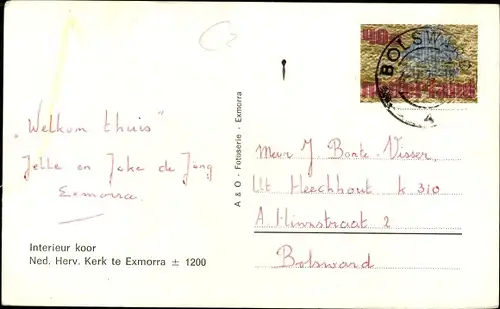 "Welkom thuis"
Jelle en Joke de Jong
Exmorra.
Interieur koor
Ned. Herv. Kerk te Exmorra ± 1200
A & O - Fotoserie - Exmorra
40
BOLSWARD
A
Mevr J. Bonte-Visser
Ut Heechhout k 310
A. Hinnstraat 2
Bolsward